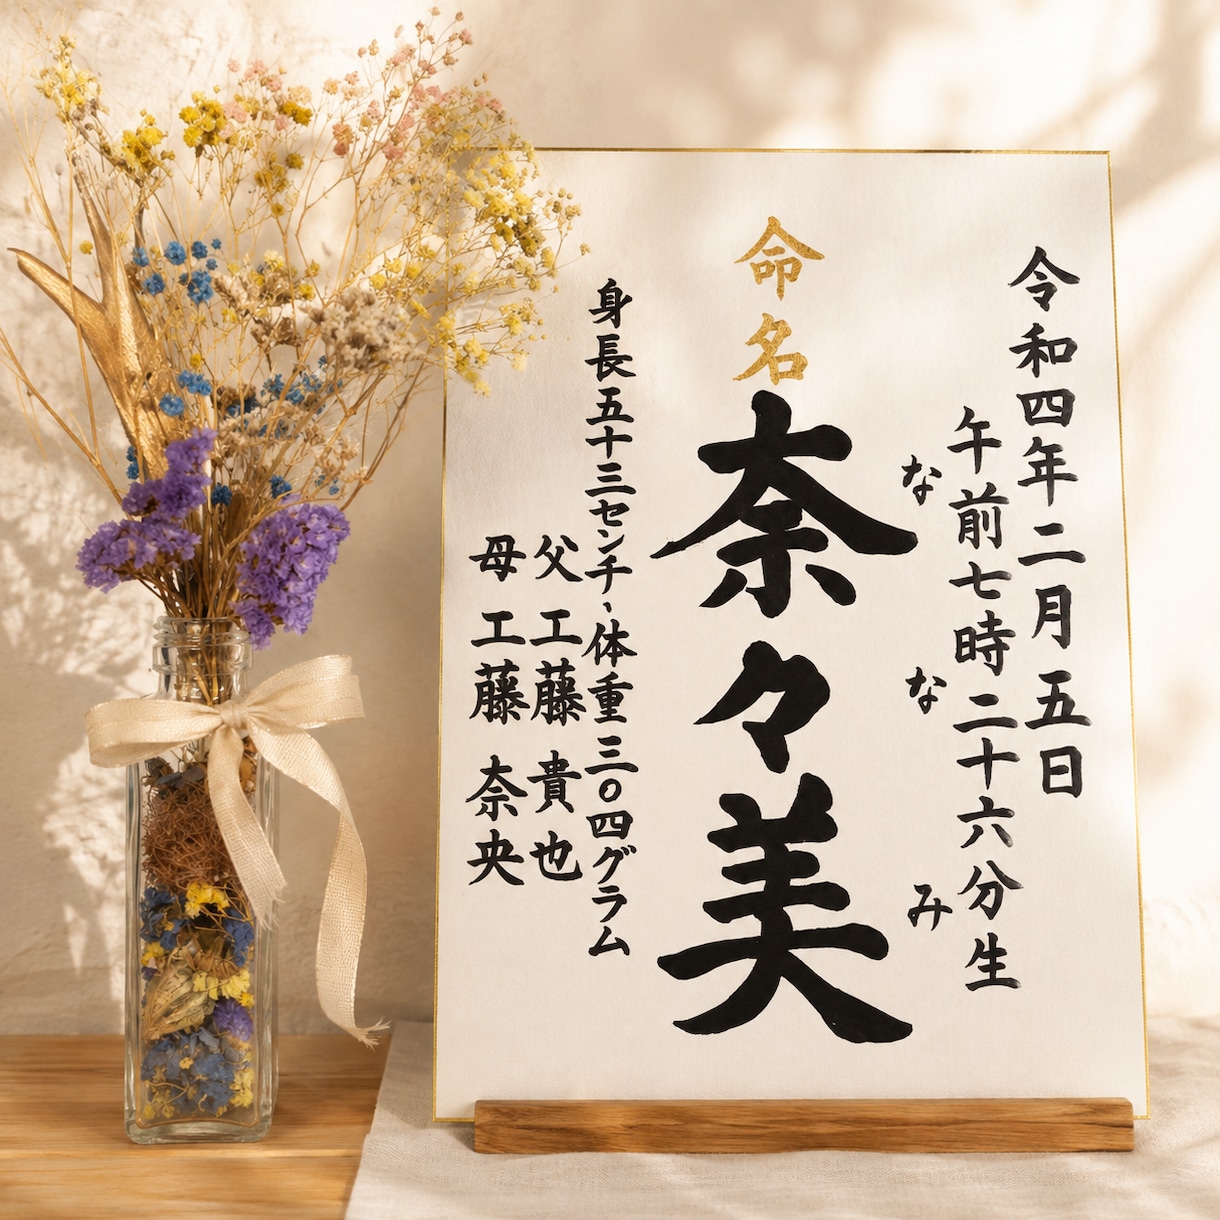 令和四年二月五日
午前七時二十六分生
ななみ
命名
奈々美
身長五十三センチ、体重三〇四グラム
父 工藤 貴也
母 工藤 奈央